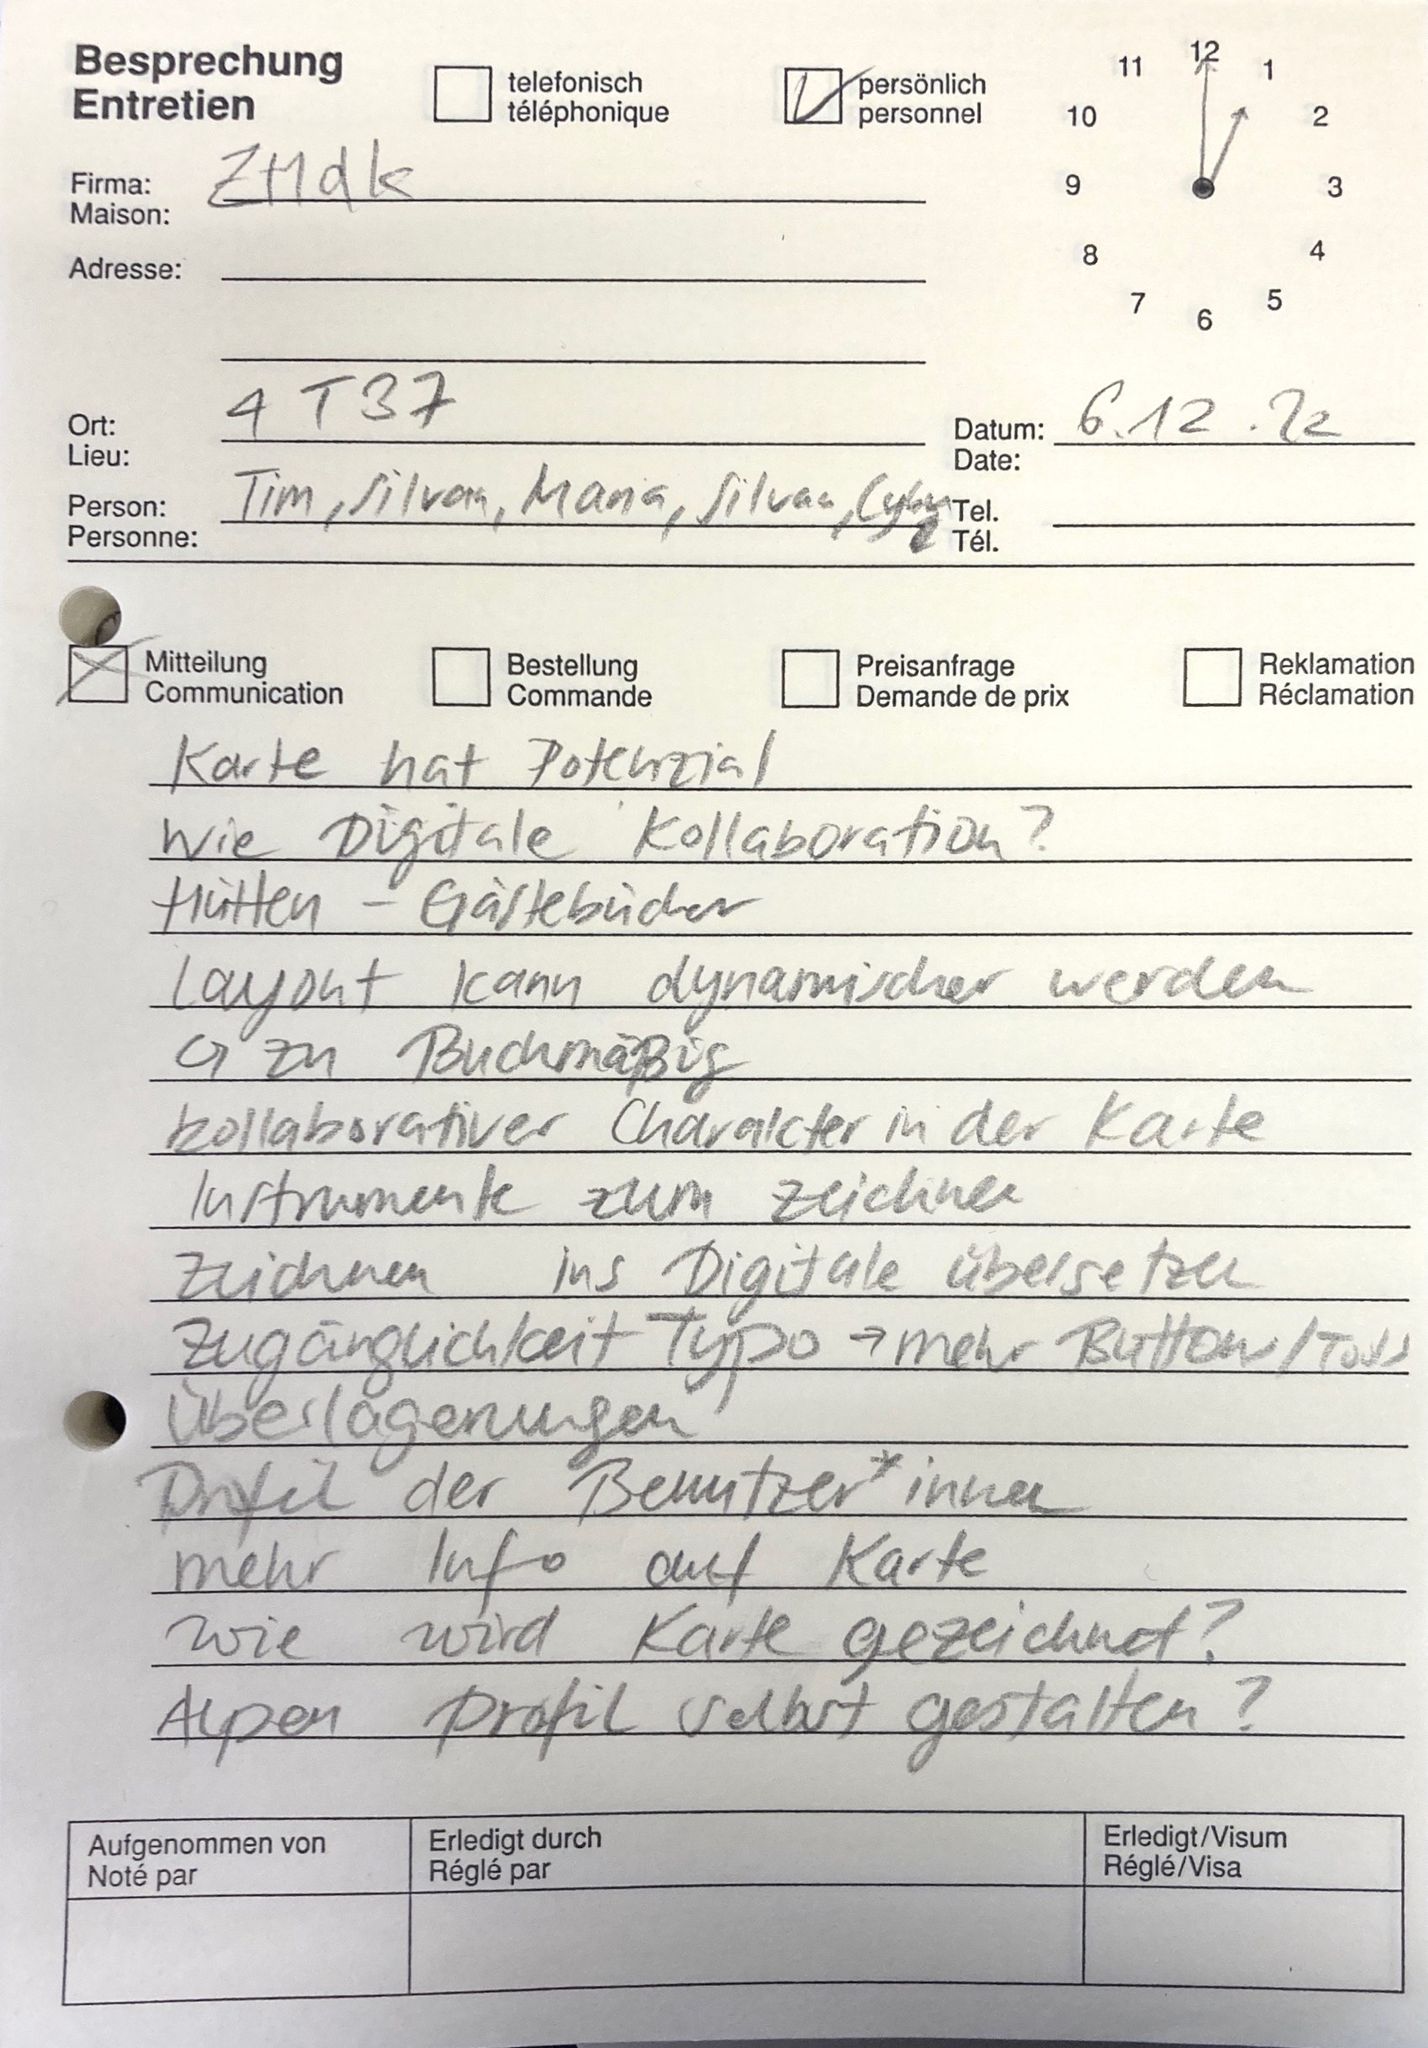 Besprechung
Entretien
telefonisch
téléphonique
persönlich
personnel
12
11
1
10
2
9
3
8
4
7
5
6
Firma: ZHdk
Maison:
Adresse:
Ort: 4 T37
Lieu:
Datum: 6.12.22
Date:
Person: Tim, Silvan, Maria, Silvan,
Personne:
Tel.
Tél.
Mitteilung
Communication
Bestellung
Commande
Preisanfrage
Demande de prix
Reklamation
Réclamation
Karte hat Potenzial
Wie Digitale Kollaboration?
Hütten - Gästebücher
Layout kann dynamischer werden
↳ zu Buchmäßig
kollaborativer Charakter in der Karte
Instrumente zum zeichnen
Zeichnen ins Digitale übersetzen
Zugänglichkeit Typo → mehr Buttons/Tools
Überlagerungen
Profil der Benutzer*innen
mehr Info auf Karte
wie wird Karte gezeichnet?
Alpen Profil selbst gestalten?
Aufgenommen von
Noté par
Erledigt durch
Réglé par
Erledigt/Visum
Réglé/Visa